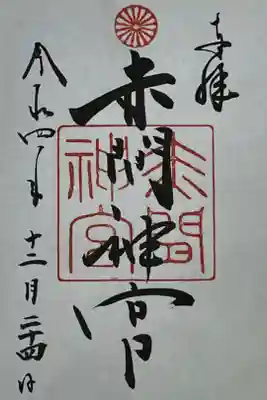 奉拝
赤間神宮
赤間
神宮
令和四年十二月二十四日